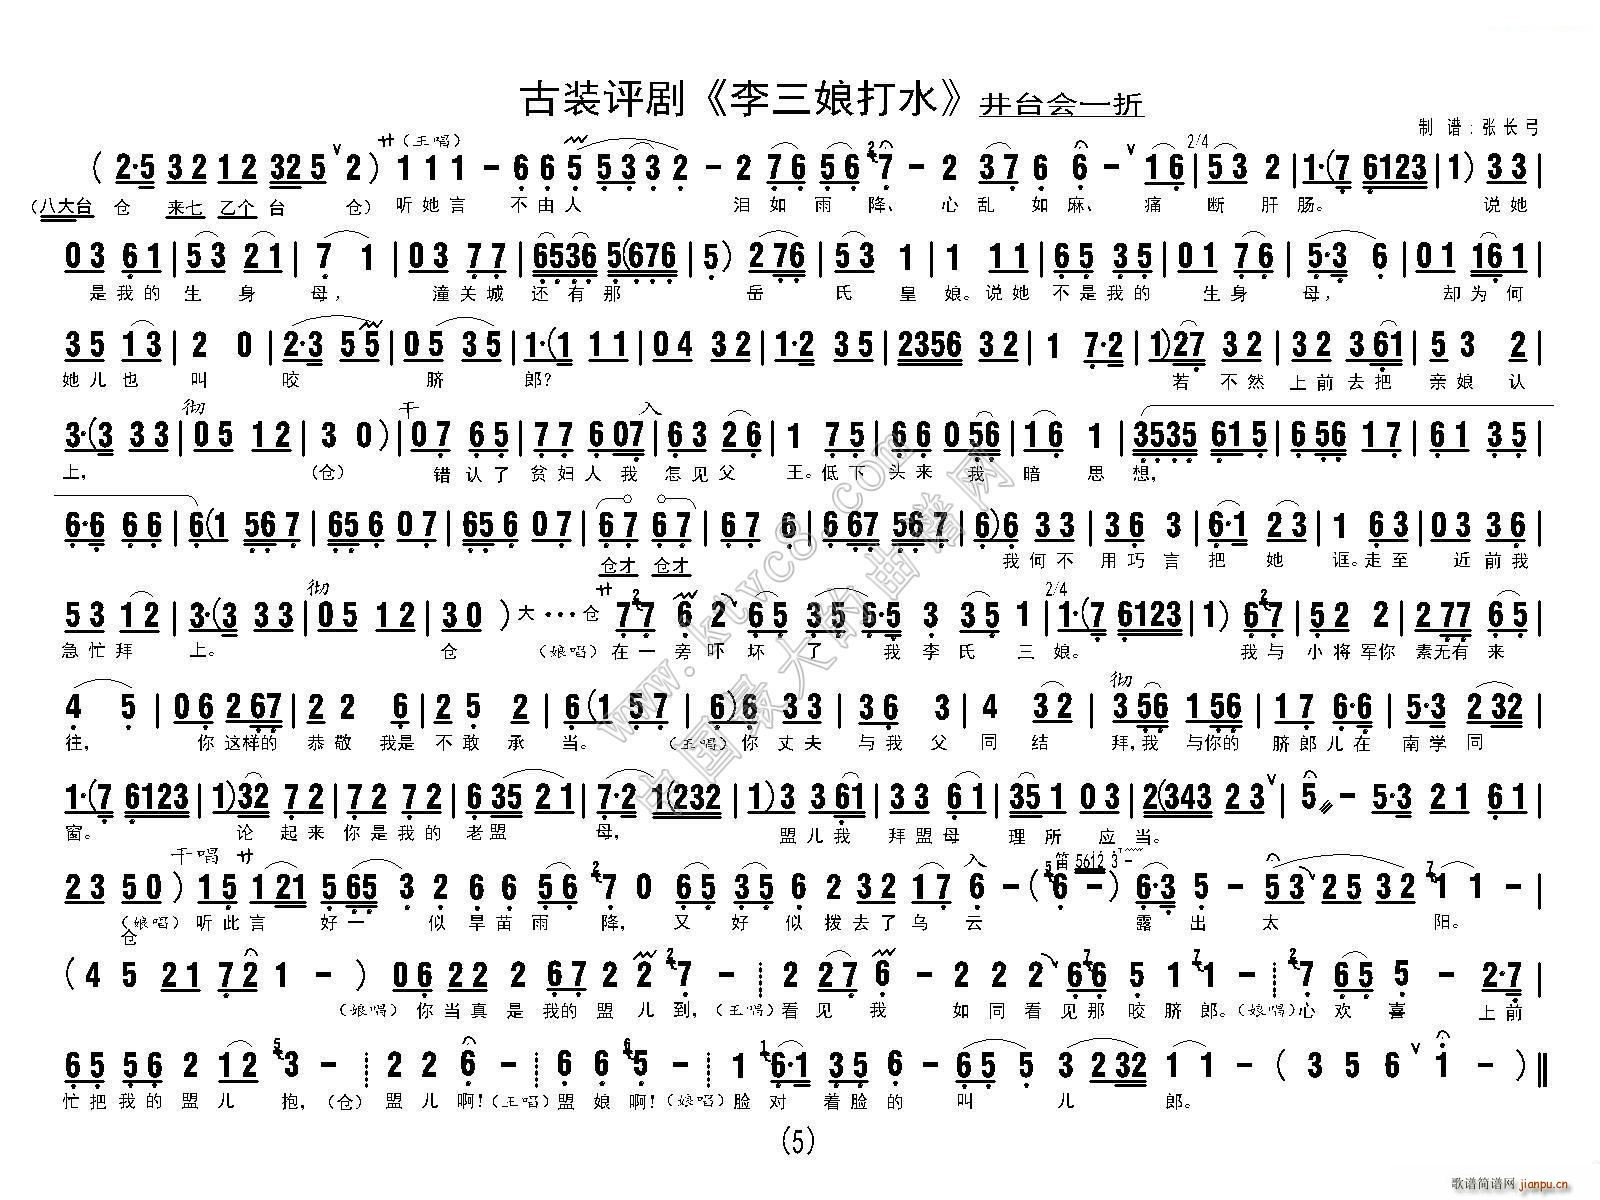 古装评剧《李三娘打水》井台会一折
制 谱：张长弓
サ（王唱） 2/4
( 2·5 3 2 1 2 32 5 2 ) 1 1 1 － 6 6 5 5 3 3 2 － 2 7 6 5 6 7 － 2 3 7 6 6 － 1 6 | 5 3 2 | 1·(7 6123 | 1) 3 3 |
（八大台 仓 来七 乙个 台 仓）听她言 不由人 泪如雨降、心乱如麻、痛断肝肠。 说她
0 3 6 1 | 5 3 2 1 | 7 1 | 0 3 7 7 | 6536 5(676 | 5) 2 76 | 5 3 1 | 1 1 1 | 6 5 3 5 | 0 1 7 6 | 5·3 6 | 0 1 16 1 |
是我的生身母， 潼关城还有那 岳氏皇娘。说她不是我的生身母， 却为何
3 5 1 3 | 2 0 | 2·3 5 5 | 0 5 3 5 | 1·(1 1 1 | 0 4 3 2 | 1·2 3 5 | 2356 3 2 | 1 7·2 | 1)27 3 2 | 3 2 3 61 | 5 3 2 |
她儿也叫咬脐郎？ 若不然上前去把亲娘认
彻 干 入
3·(3 3 3 | 0 5 1 2 | 3 0 ) | 0 7 6 5 | 7 7 6 07 | 6 3 2 6 | 1 7 5 | 6 6 0 56 | 1 6 1 | 3535 61 5 | 6 56 1 7 | 6 1 3 5 |
上， （仓） 错认了贫妇人我怎见父王。低下头来我暗思想，
6·6 6 6 | 6(1 56 7 | 65 6 0 7 | 65 6 0 7 | 6 7 6 7 | 6 7 6 | 6 67 56 7 | 6)6 3 3 | 3 6 3 | 6·1 2 3 | 1 6 3 | 0 3 3 6 |
仓才 仓才 我何不用巧言把她诓。走至近前我
彻 サ 2/4
5 3 1 2 | 3·(3 3 3 | 0 5 1 2 | 3 0 ) 大···仓 7 7 6 2 6 5 3 5 6·5 3 3 5 1 | 1·(7 6123 | 1) 6 7 | 5 2 2 | 2 77 6 5 |
急忙拜上。 仓 （娘唱）在一旁吓坏了我李氏三娘。 我与小将军你素无有来
彻
4 5 | 0 6 2 67 | 2 2 6 | 2 5 2 | 6(1 5 7 | 6)6 3 3 | 3 6 3 | 4 3 2 | 3 56 1 56 | 1 7 6·6 | 5·3 2 3 |
往， 你这样的恭敬我是不敢承当。 （王唱）你丈夫与我父同结拜，我与你的脐郎儿在南学同
1·(7 6123 | 1)32 7 2 | 7 2 7 2 | 6 35 2 1 | 7·2 1(232 | 1)3 3 61 | 3 3 6 1 | 35 1 0 3 | 2(343 2 3 | 5 － 5·3 2 1 6 1 |
窗。 论起来你是我的老盟母， 盟儿我拜盟母理所应当。
干唱 サ 入 笛 5612 3 －
2 3 5 0 ) 1 5 1 21 5 65 3 2 6 6 5 6 7 0 6 5 3 5 6 2 3 2 1 7 6 － ( 6 － ) 6·3 5 － 5 3 2 5 3 2 1 1 － |
（娘唱）听此言好一似旱苗雨降， 又好似拨去了乌云露出太阳。
仓
( 4 5 2 1 7 2 1 － ) 0 6 2 2 2 6 7 2 2 7 － 2 2 7 6 － 2 2 2 6 6 5 1 1 － 7 6 5 5 － 2·7 |
（娘唱）你当真是我的盟儿到，（王唱）看见我如同看见那咬脐郎。（娘唱）心欢喜上前
6 5 5 6 2 1 2 3 － 2 2 6 － 6 6 5 － 1 6·1 3 5 6 － 6 5 5 3 2 32 1 1 － ( 3 5 6 1 － ) ‖
忙把我的盟儿抱，（仓）盟儿啊！（王唱）盟娘啊！（娘唱）脸对着脸的叫儿郎。
(5)
www.ktvc8.com
中国最大的曲谱网
歌谱简谱网
jianpu.cn